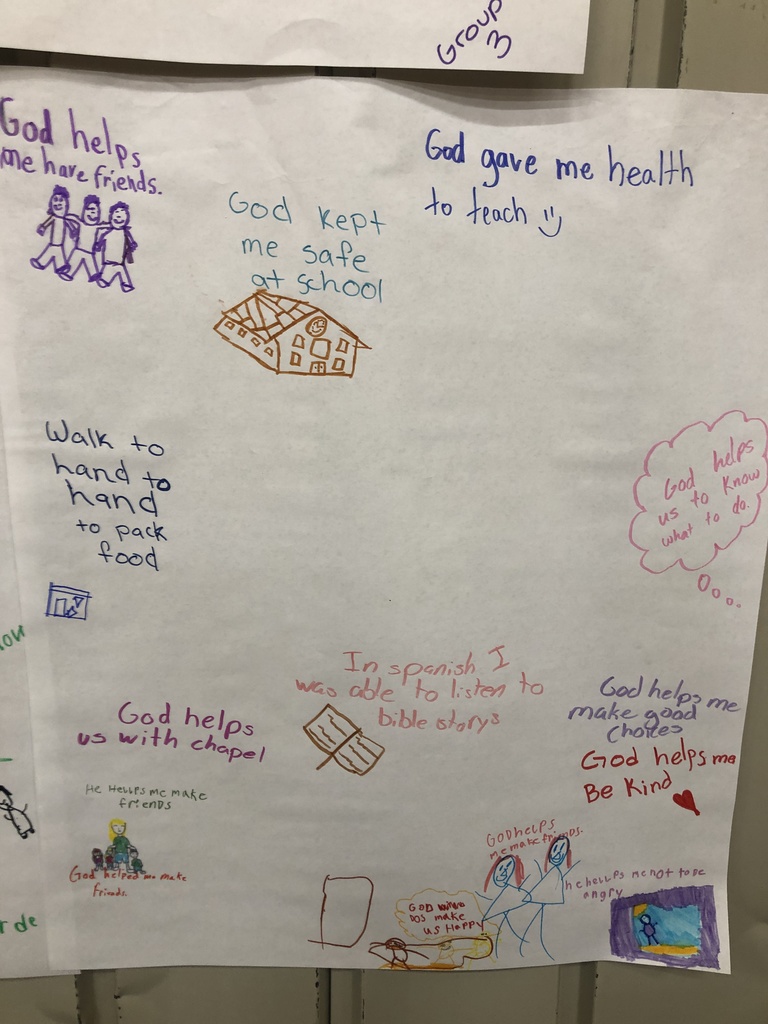 Group
3
God helps
me have friends.
God gave me health
to teach
God kept
me safe
at school
Walk to
hand to
hand
to pack
food
God helps
us to know
what to do.
In spanish I
was able to listen to
bible storys
God helps me
make good
choices
God helps me
Be kind
God helps
us with chapel
He Hellps me make
friends
God helped me make
friends.
GOD helps
me make friends.
he hellps me not to be
angry
GOD
DOS make
us Happy
r de